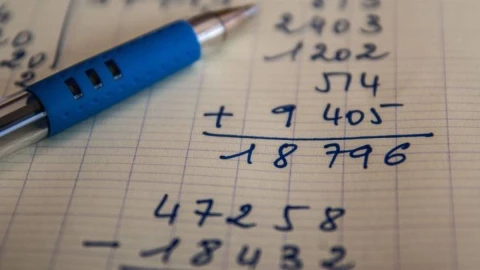 2403
1202
514
+ 9 405
18 796
47258
- 18432